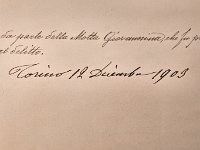 da parte della Motta Giovannina, che fu p
al delitto.
Torino 12 Dicembre 1903